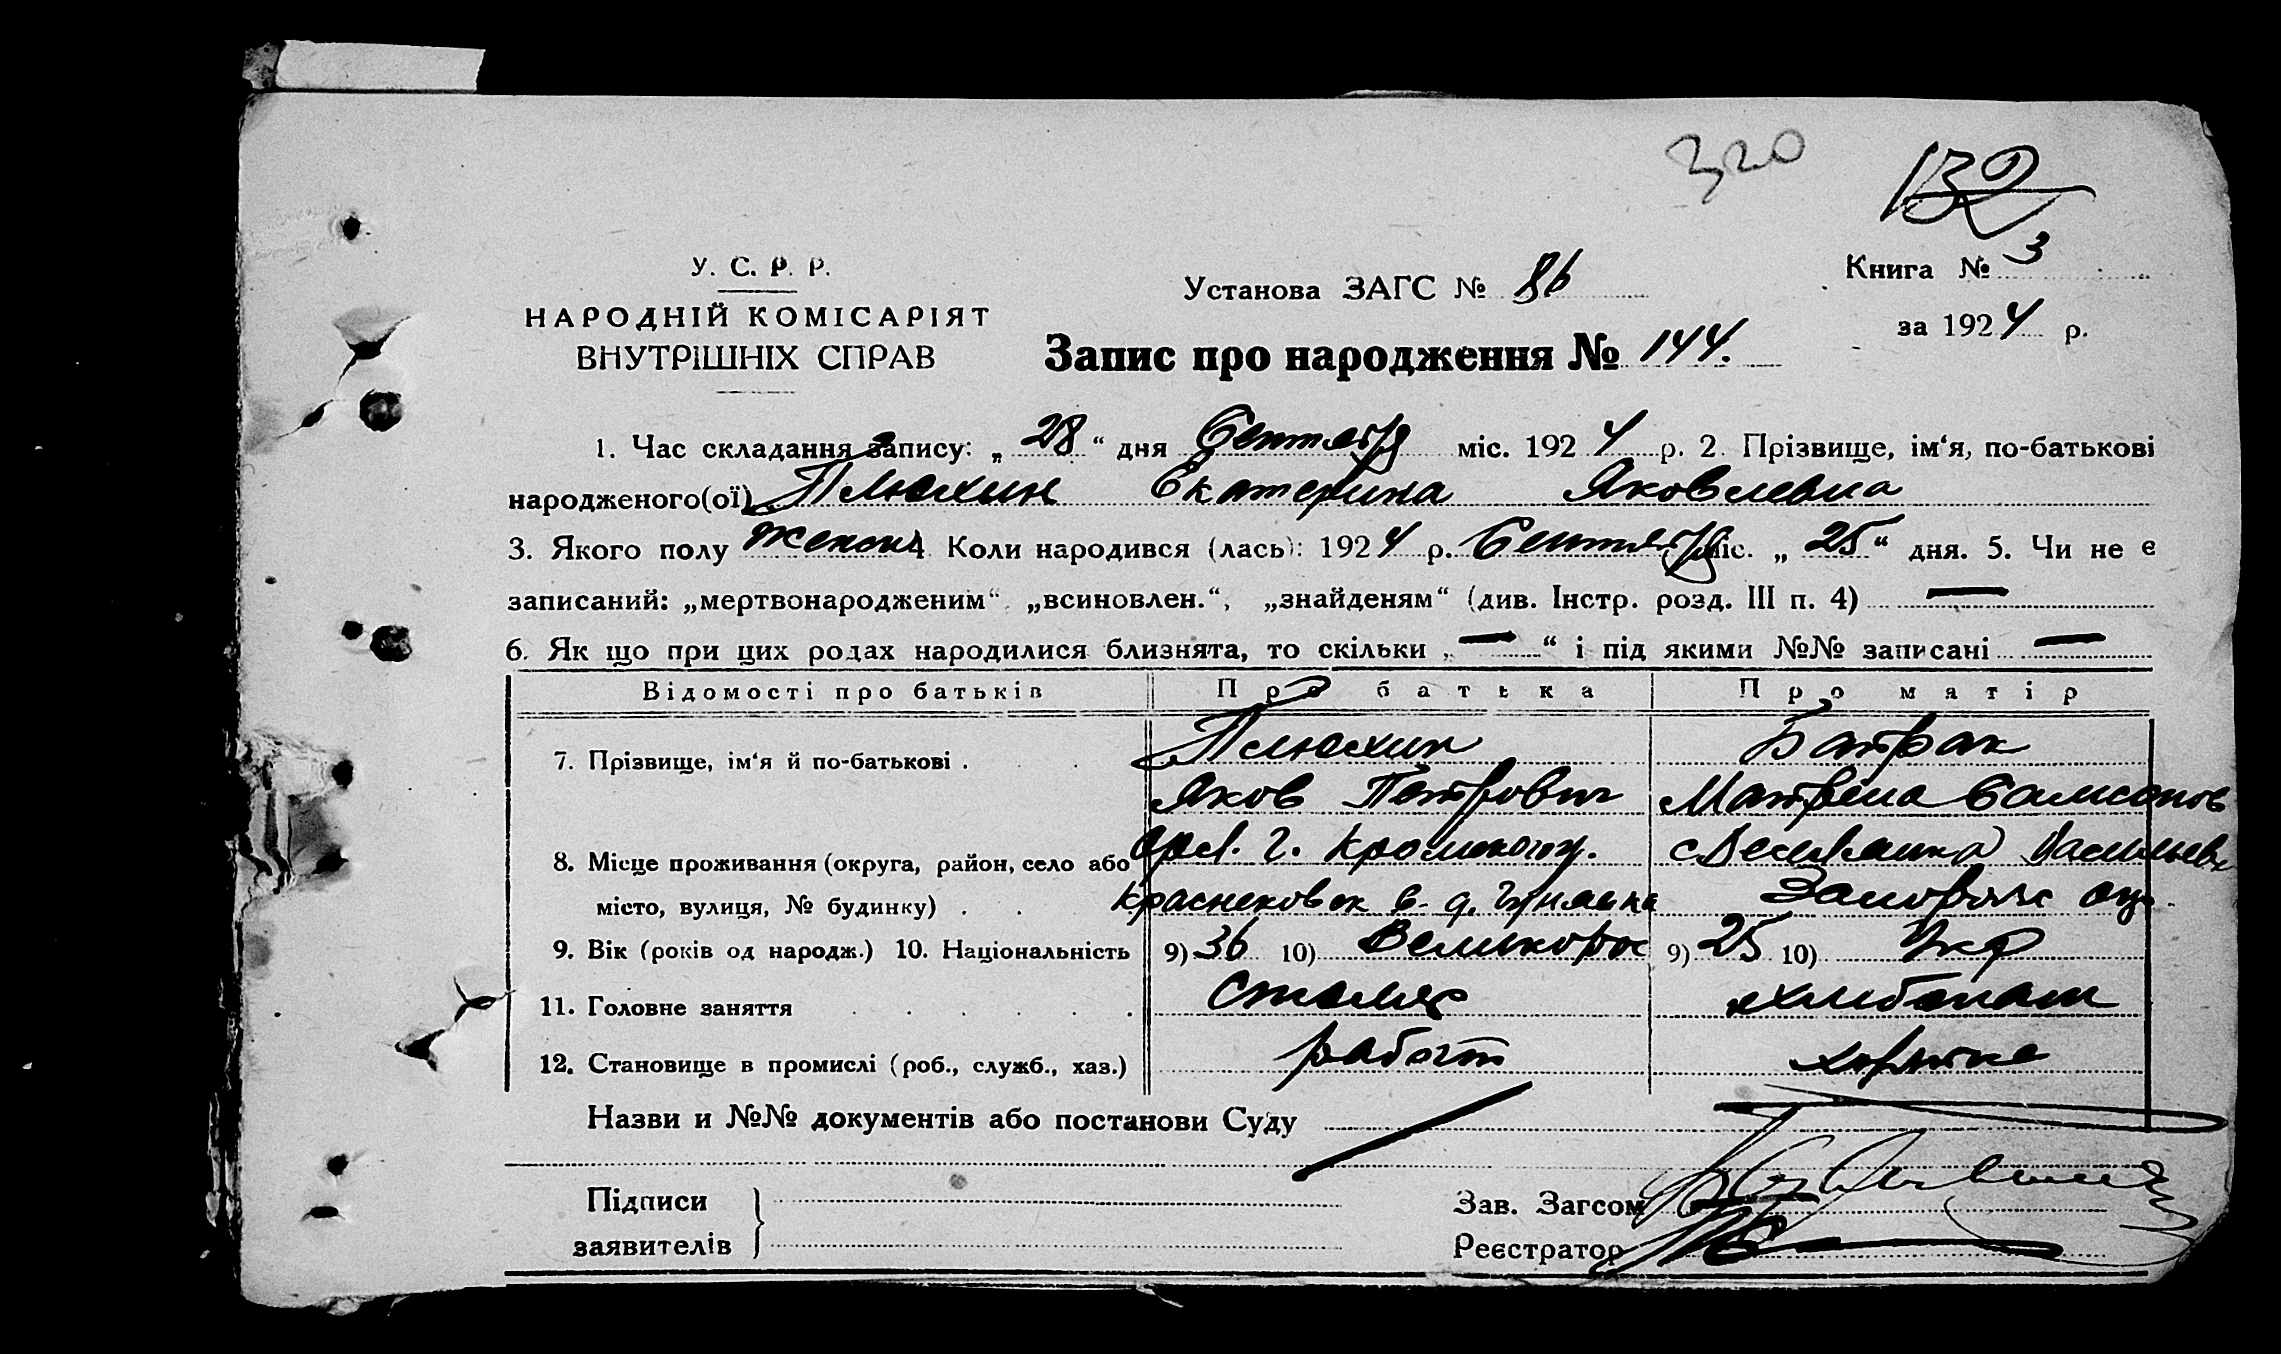 320
132
У. С. Р. Р.
НАРОДНІЙ КОМІСАРІЯТ
ВНУТРІШНІХ СПРАВ
Установа ЗАГС № 86
Книга № 3
за 1924 р.
Запис про народження № 144.
1. Час складання запису: „ 28 “ дня Сентября міс. 1924 р. 2. Прізвище, ім‘я, по-батькові
народженого(ої) Плюхин Екатерина Яковлевна
3. Якого полу женск 4 Коли народився (лась): 1924 р. Сентября міс. „ 25 “ дня. 5. Чи не є
записаний: „мертвонародженим“, „всиновлен.“, „знайденям“ (див. Інстр. розд. III п. 4) —
6. Як що при цих родах народилися близнята, то скільки „ — “ і під якими №№ записані —
Відомості про батьків Про батька Про матір
7. Прізвище, ім‘я й по-батькові . Плюхин Батрак
Яков Петрович Матрена Самсонов
8. Місце проживання (округа, район, село або Орл. г. Кромского у.
місто, вулиця, № будинку) . . Запорож окр.
9. Вік (років од народж.) 10. Національність 9) 36 10) Великорос 9) 25 10) Укр
11. Головне заняття Столяр хлибопаш
12. Становище в промислі (роб., служб., хаз.) работ
Назви и №№ документів або постанови Суду
Підписи
заявителів
Зав. Загсом
Реєстратор